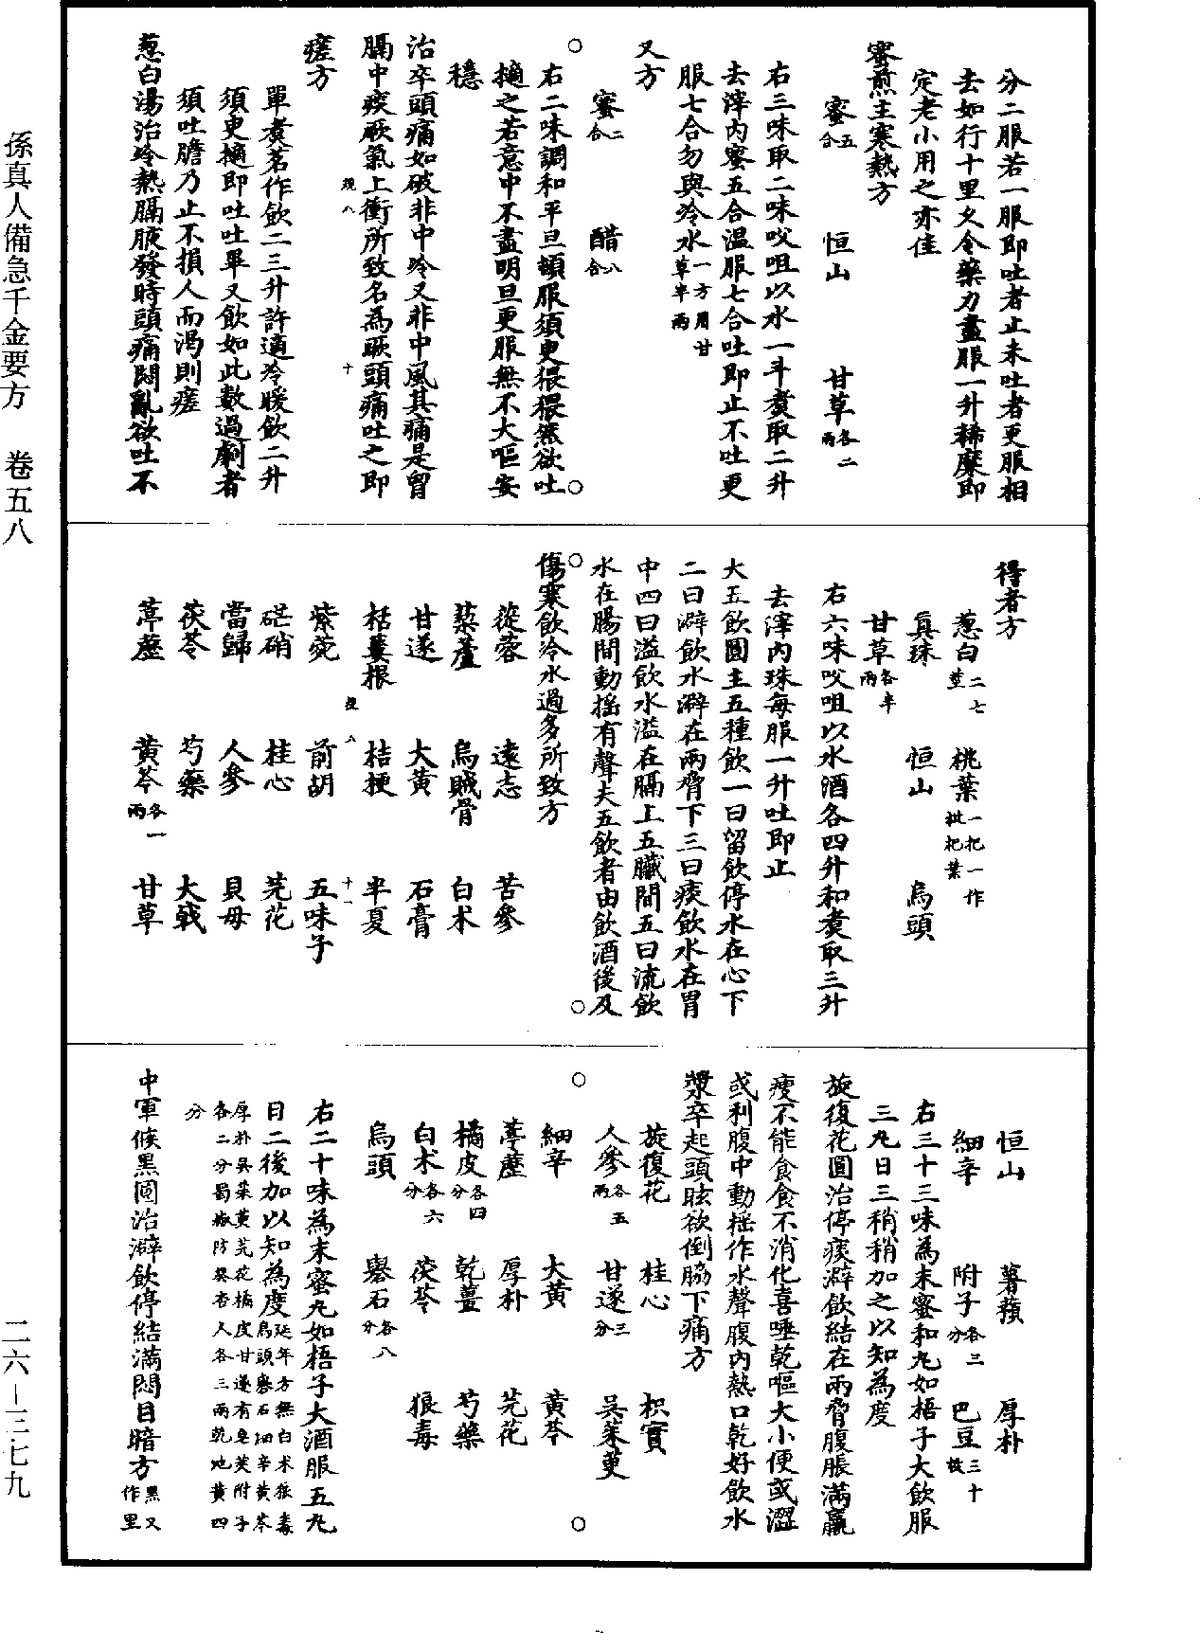 分二服若一服即吐者止未吐者更服相
去如行十里久令藥力盡服一升稀糜即
定老小用之亦佳
蜜煎主寒熱方
蜜五合 恒山 甘草各二兩
右三味取二味㕮咀以水一斗煮取二升
去滓內蜜五合溫服七合吐即止不吐更
服七合勿與冷水一方用甘草半兩
又方
蜜二合 醋八合
右二味調和平旦頓服須臾猥猥然欲吐
擿之若意中不盡明旦更服無不大嘔安
穩
治卒頭痛如破非中冷又非中風其痛是胷
膈中痰厥氣上衝所致名為厥頭痛吐之即
規八 十
瘥方
單煮茗作飲二三升許適冷暖飲二升
須臾擿即吐吐畢又飲如此數過劇者
須吐膽乃止不損人而渴則瘥
蔥白湯治冷熱膈痰發時頭痛悶亂欲吐不
得者方
蔥白二七莖 桃葉一把一作枇杷葉
真珠 恒山 烏頭
甘草各半兩
右六味㕮咀以水酒各四升和煮取三升
去滓內珠每服一升吐即止
大五飲圓主五種飲一曰留飲停水在心下
二曰澼飲水澼在兩脅下三曰痰飲水在胃
中四曰溢飲水溢在膈上五臟間五曰流飲
水在腸間動搖有聲夫五飲者由飲酒後及
傷寒飲冷水過多所致方
蓯蓉 遠志 苦參
藜蘆 烏賊骨 白朮
甘遂 大黃 石膏
栝蔞根 桔梗 半夏
規 八 十一
紫菀 前胡 五味子
硭硝 桂心 芫花
當歸 人參 貝母
茯苓 芍藥 大戟
葶藶 黃芩各一兩 甘草
恒山 薯蕷 厚朴
細辛 附子各三分 巴豆三十枚
右三十三味為末蜜和丸如梧子大飲服
三丸日三稍稍加之以知為度
旋復花圓治停痰澼飲結在兩脅腹脹滿羸
瘦不能食食不消化喜唾乾嘔大小便或澀
或利腹中動搖作水聲腹內熱口乾好飲水
漿卒起頭眩欲倒脇下痛方
旋復花 桂心 枳實
人參各五兩 甘遂三分 吳茱萸
細辛 大黃 黃芩
葶藶 厚朴 芫花
橘皮各四分 乾薑 芍藥
白朮各六分 茯苓 狼毒
烏頭 礜石各八分
右二十味為末蜜丸如梧子大酒服五丸
日二後加以知為度延年方無白朮狼毒烏頭礜石細辛黃芩
厚朴吳茱萸芫花橘皮甘遂有皂莢附子各二分蜀椒防葵杏人各三兩乾地黃四
分
中軍候黑圓治澼飲停結滿悶目暗方黑又作里
孫真人備急千金要方 卷五八
二六-三七九